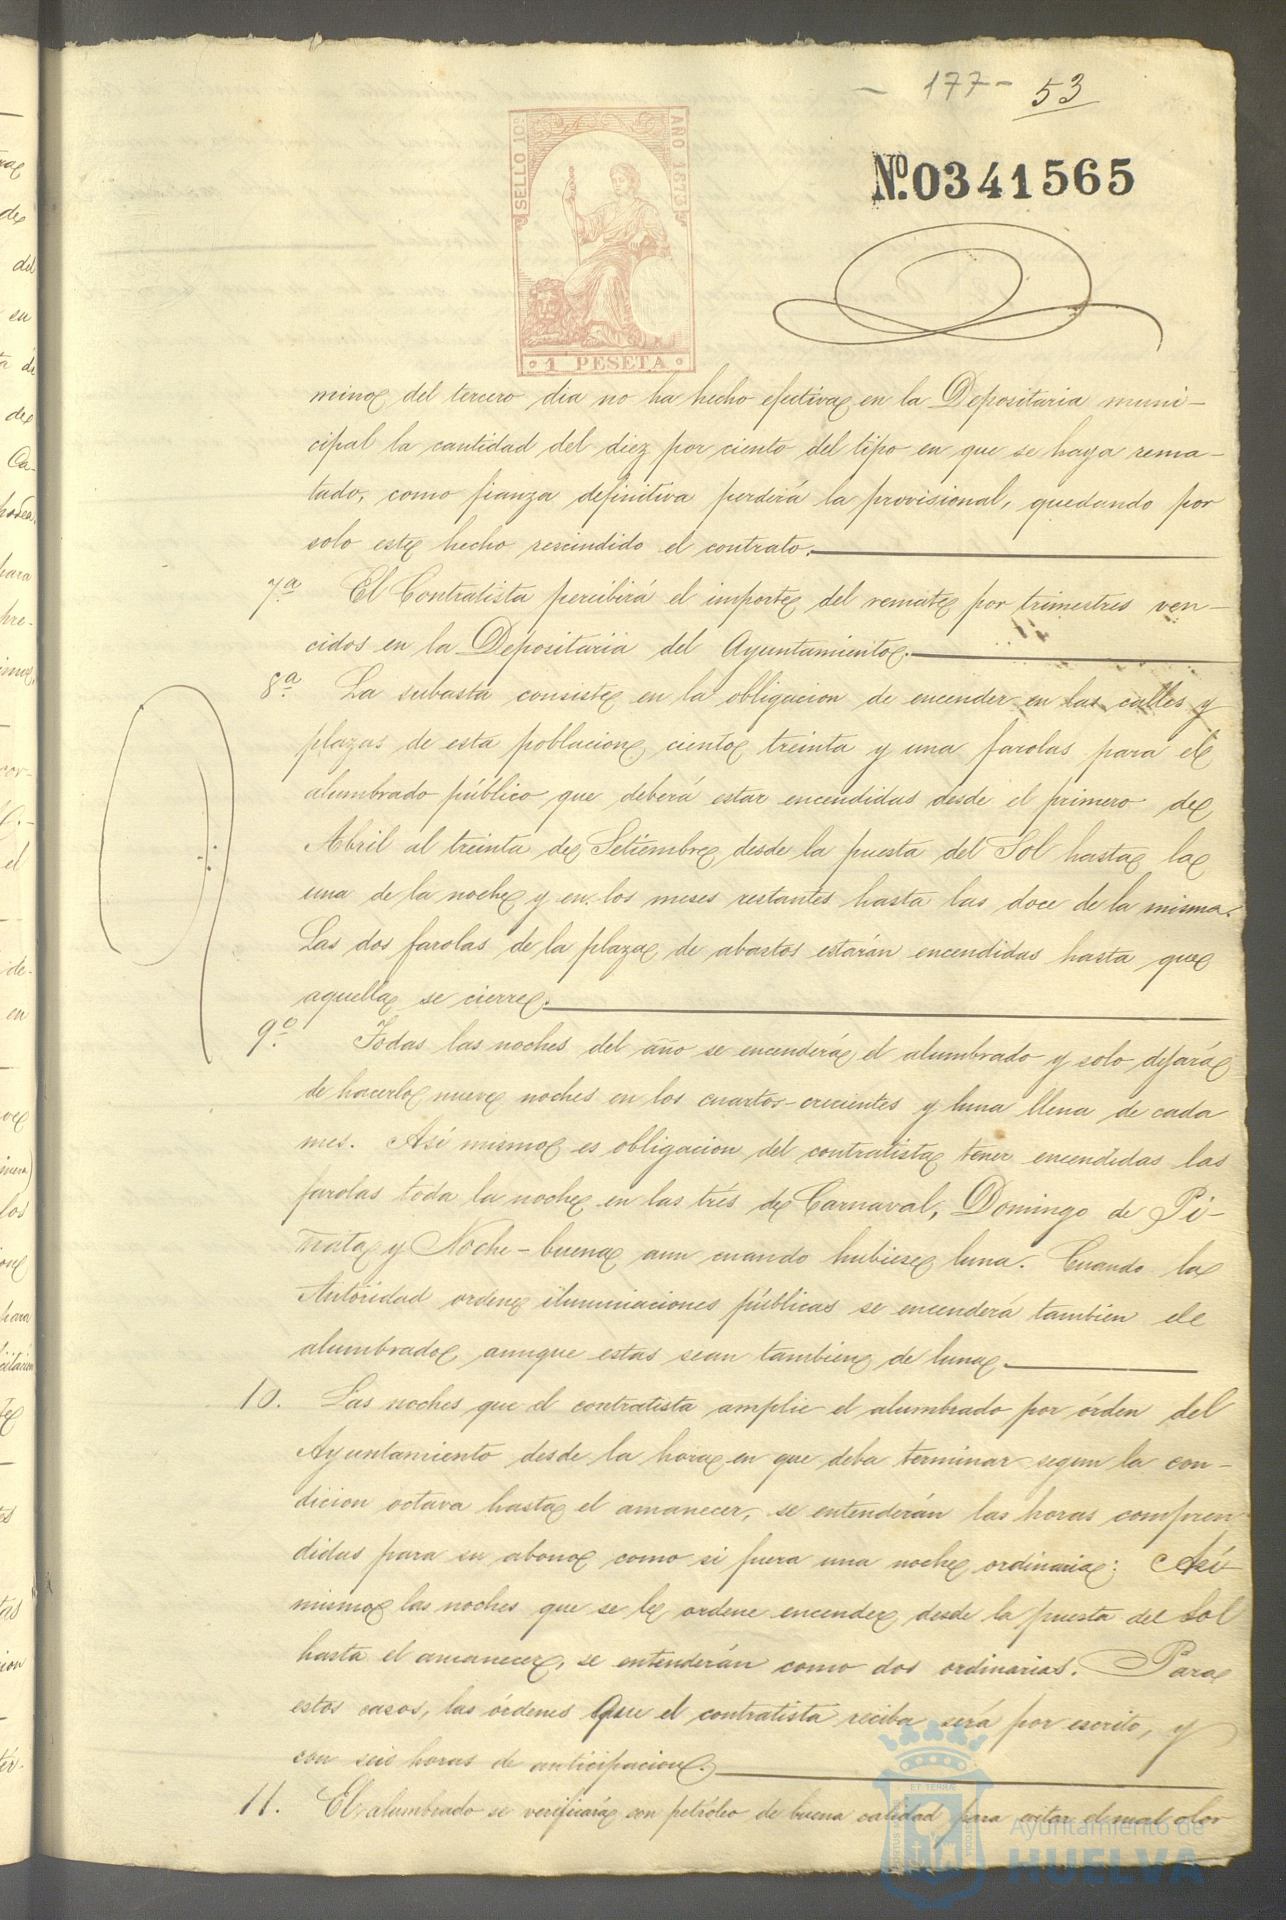 - 177 - 53
SELLO 10º
AÑO 1873
1 PESETA
Nº. 0341565
mino del tercero dia no ha hecho efectiva en la Depositaria muni-
cipal la cantidad del diez por ciento del tipo en que se haya rema-
tado, como fianza definitiva perderá la provisional, quedando por
solo este hecho rescindido el contrato.
7.ª El Contratista percibirá el importe del remate por trimestres ven-
cidos en la Depositaria del Ayuntamiento.
8.ª La subasta consiste en la obligacion de encender en las calles y
plazas de esta poblacion, ciento treinta y una farolas para el
alumbrado público que deberá estar encendidas desde el primero de
Abril al treinta de Setiembre, desde la puesta del Sol hasta la
una de la noche y en los meses restantes hasta las doce de la misma.
Las dos farolas de la plaza de abastos estarán encendidas hasta que
aquella se cierre.
9.º Todas las noches del año se encenderá el alumbrado y solo dejará
de hacerlo nueve noches en los cuartos-crecientes y luna llena de cada
mes. Así mismo es obligacion del contratista tener encendidas las
farolas toda la noche en las trés de Carnaval, Domingo de Pi-
ñata y Noche-buena aun cuando hubiese luna. Cuando la
Autoridad ordene iluminaciones públicas se encenderá tambien el
alumbrado, aunque estas sean tambien de luna.
10. Las noches que el contratista amplie el alumbrado por órden del
Ayuntamiento desde la hora en que deba terminar segun la con-
dicion octava hasta el amanecer, se entenderán las horas compren
didas para su abono como si fuera una noche ordinaria: Así
mismo las noches que se le ordene encender, desde la puesta del Sol
hasta el amanecer, se entenderán como dos ordinarias. Para
estos casos, las órdenes que el contratista reciba será por escrito, y
con seis horas de anticipacion.
11. El alumbrado se verificará con petróleo de buena calidad para evitar el mal olor
Ayuntamiento de
HUELVA